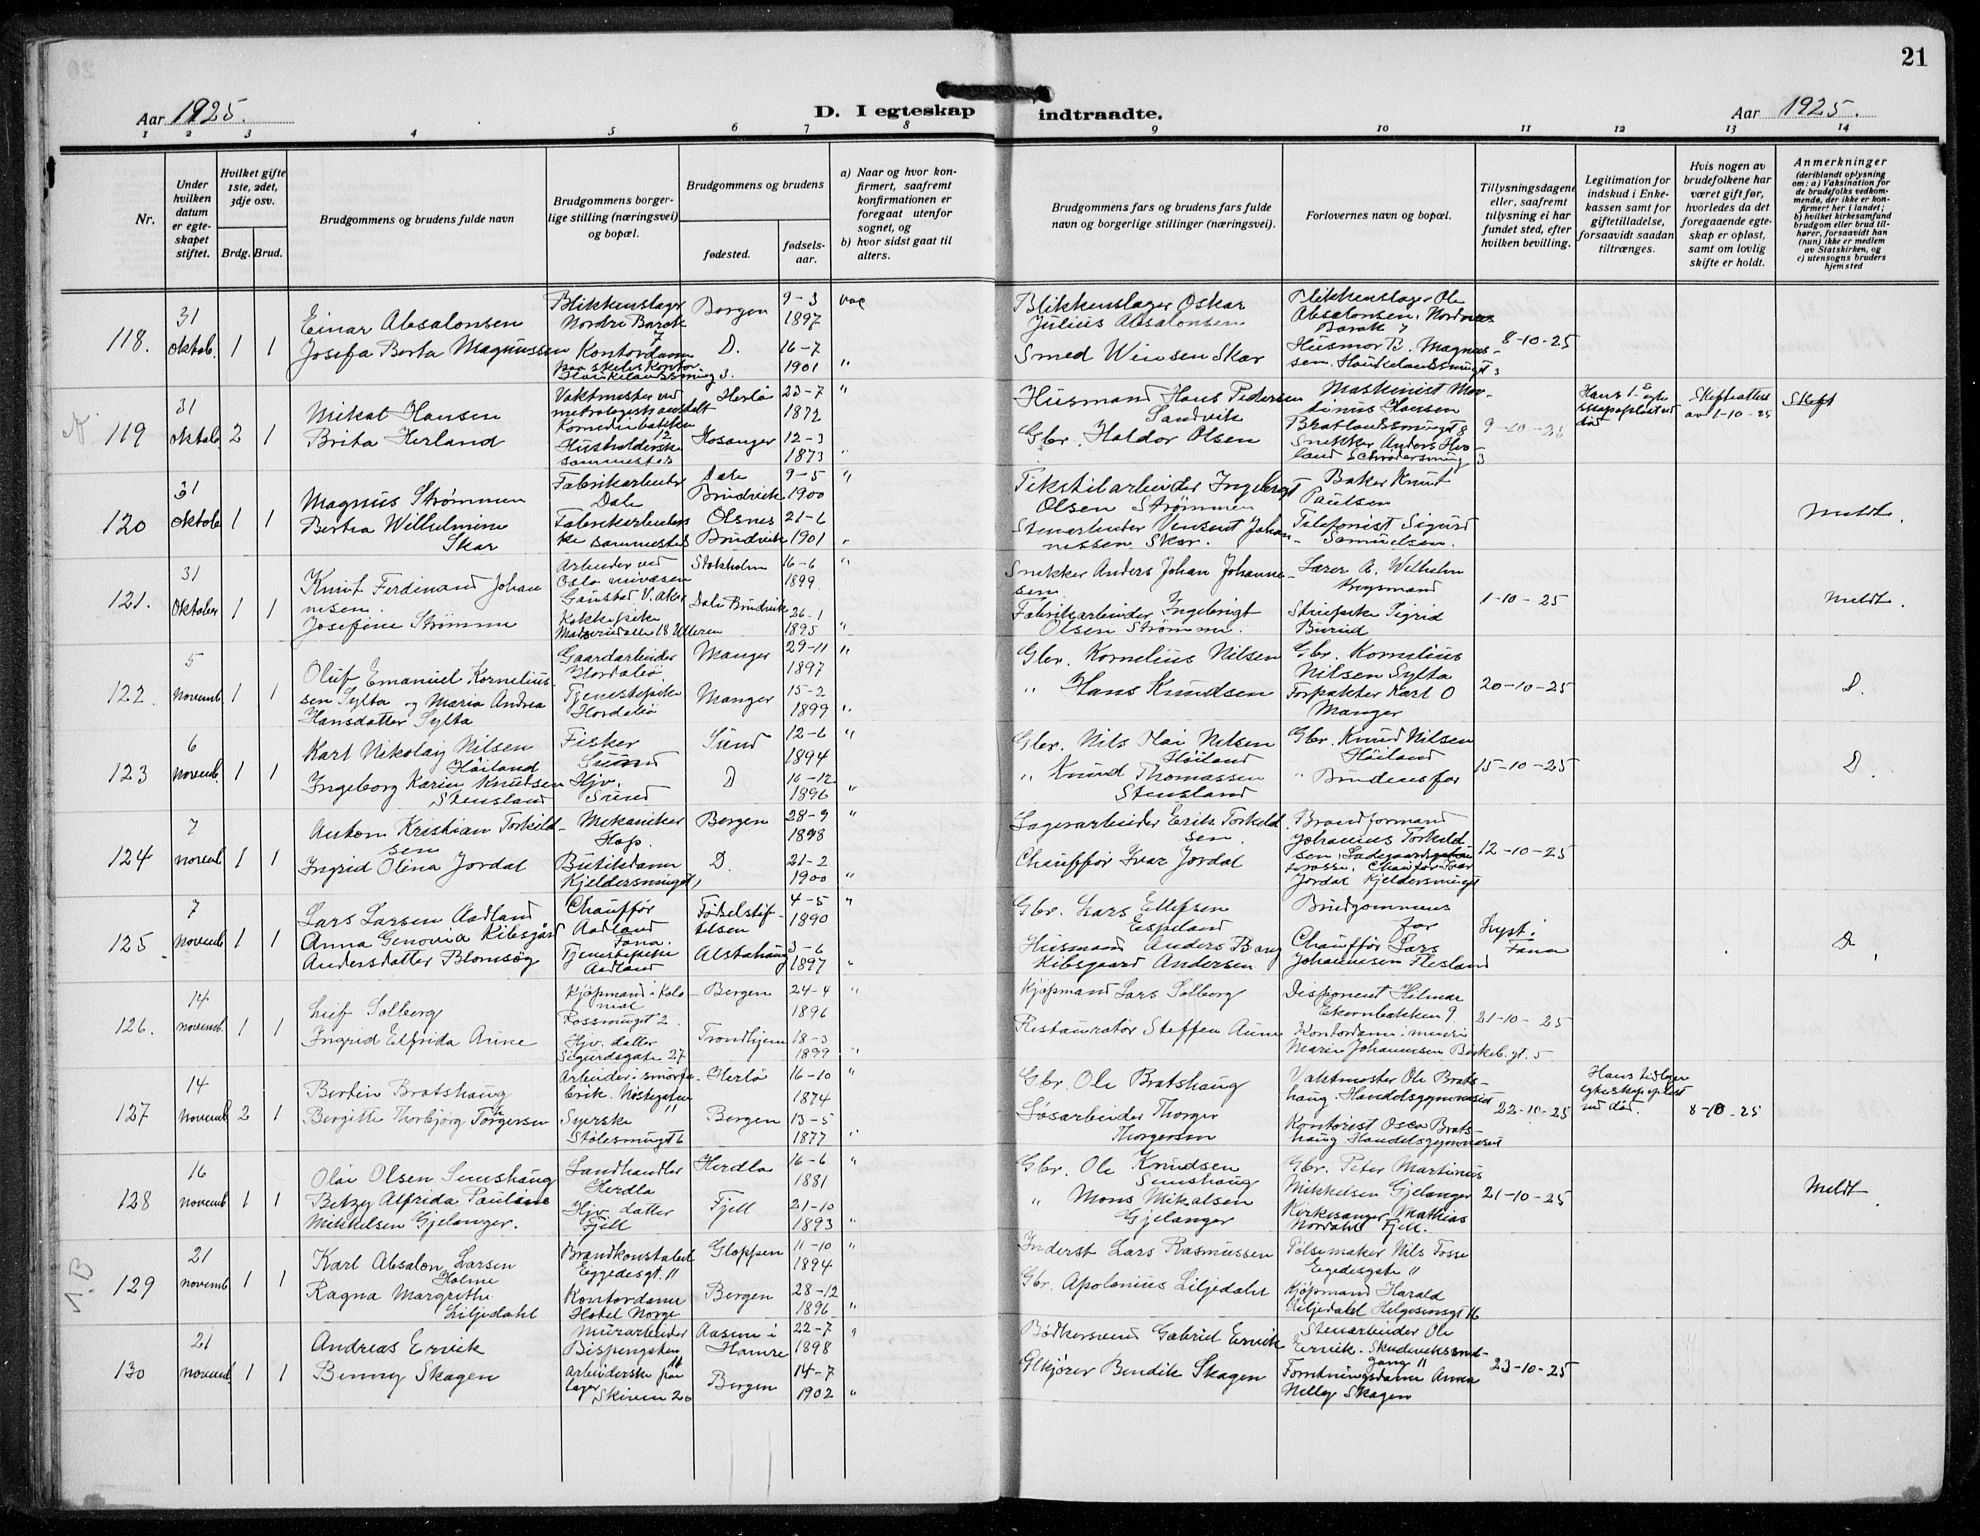 21
Aar 1925.
D. I egteskap indtraadte.
Aar 1925.
1 2 3 4 5 6 7 8 9 10 11 12 13 14
Nr.
Under hvilken datum er egteskapet stiftet.
Hvilket gifte 1ste, 2det, 3dje osv.
Brdg. Brud.
Brudgommens og brudens fulde navn
Brudgommens borgerlige stilling (næringsvei) og bopæl.
Brudgommens og brudens
fødested.
fødselsaar.
a) Naar og hvor konfirmert, saafremt konfirmationen er foregaat utenfor sognet, og
b) hvor sidst gaat til alters.
Brudgommens fars og brudens fars fulde navn og borgerlige stillinger (næringsvei).
Forlovernes navn og bopæl.
Tillysningsdagene eller, saafremt tillysning ei har fundet sted, efter hvilken bevilling.
Legitimation for indskud i Enkekassen samt for giftetilladelse, forsaavidt saadan tiltrænges.
Hvis nogen av brudefolkene har været gift før, hvorledes da det foregaaende egteskap er opløst, samt om lovlig skifte er holdt.
Anmerkninger (deriblandt oplysning om: a) Vaksination for de brudefolks vedkommende, der ikke er konfirmert her i landet; b) hvilket kirkesamfund brudgom eller brud tilhører, forsaavidt han (hun) ikke er medlem av Statskirken, og c) utensogns bruders hjemsted
118. 31 oktob. 1 1
Einar Absalonsen
Josefa Berta Magnussen
Blikkenslager Nordre Barak 7
Kontordame
Bergen 9-3 1897
D. 16-7 1901 "
Blikkenslager Oskar Julius Absalonsen
Smed Vinsen Skar
Blikkenslager Ole Absalonsen, Nordnes Barak 7
Husmor B. Magnussen
8-10-25
119 31 oktob. 2 1
Mikal Hansen
Brita Herland
Vaktmester ved
Husholderske sammesteds
Herlö 23-7 1872 "
Hosanger 12-3 1873 "
Husmand Hans Pedersen Sandvik
Gbr. Haldor Olsen
Maskinist Hansen
Snekker Anders
9-10-25
Hans 1ste egteskap opløst ved død
Skifteattest av 1-10-25
Skift
120 31 oktob. 1 1
Magnus Strømmen
Berta Wilhelmine Skar
Fabrikarbeider Dale
Fabrikarbeiderske sammesteds
Dale Bruvik 9-5 1900 "
Olsnes Bruvik 21-6 1901 "
Tekstilarbeider Ingebrigt Olsen Strømmen
Stenarbeider Vinsent Johannessen Skar.
Baker Knut Paulsen
Telefonist Sigurd Samuelsen.
Meldt.
121. 31 Oktober 1 1
Knut Ferdinand Johannesen.
Josefine Strømme
Arbeider ved Oslo
Kokkepike
Stokholm 16-6 1899. "
Dale Bruvik 26-1 1895 "
Snekker Anders Johan Johannesen
Fabrikarbeider Ingebrigt Olsen Strømme.
Lærer A. Wilhelm Krogsmand
Sigrid Burud
1-10-25
Meldt.
122. 5 novemb. 1 1
Oluf Emanuel Korneliussen Sylta og Maria Andrea Hansdatter Sylta
Gaardarbeider Hordalsö
Tjenestepike Hordalsö
Manger 29-11 1897 "
Manger 15-2 1899 "
Gbr. Kornelius Nilsen
" Hans Knudsen
Gbr. Kornelius Nilsen Sylta
Forpakter Karl O Manger
20-10-25
D.
123 6 novemb. 1 1
Karl Nikolay Nilsen Höiland
Ingeborg Karine Knutsen Stensland
Fisker Sund
Hjv. Sund
Sund 12-6 1894 "
D 16-12 1896 "
Gbr. Nils Olai Nilsen Höiland
" Knud Thomassen Stensland
Gbr. Knud Nilsen Höiland
" Brudens far
15-10-25
D.
124 7 novemb. 1 1
Anton Kristian Torkildsen
Ingrid Olina Jordal
Mekaniker Hop.
Butikdame Kjeldersmuget 1
Bergen 28-9 1898 "
D. 21-2 1900 "
Lagerarbeider Erik Torkildsen
Chauffør Ivar Jordal
Brandformand Johannes Torkildsen
Chauffør Ivar Jordal Kjeldersmuget
12-10-25
125. 7 novemb. 1 1
Lars Larsen Aadland
Anna Genovia Kibsgård Andersdatter Blomsøg
Chauffør Aadland Fana.
Tjenestepike Aadland
Fødselstiftelsen 4-5 1890 "
Alstahaug 3-6 1897 "
Gbr. Lars Ellefsen Espeland
Husmand Anders Bang Kibsgaard Andersen
Brudgommens far
Chauffør Lars Johannesen Flesland
Lyst i Fana
D.
126. 14 novemb. 1 1
Leif Solberg
Ingrid Elfrida Aune
Kjøpmand i Kolonial Rosesmuget 2.
Hjv. datter Sigurdsgate 27
Bergen 24-4 1896 "
Trondhjem 18-3 1899 "
Kjøpmand Lars Solberg
Restauratør Steffen Aune
Disponent Hilmar Ekernbakken 9
Kontordame Marie Johannesen Birkeb. gt. 5
21-10-25
127 14 novemb. 2 1
Bertin Bratshaug
Bergitte Thorbjørg Törgersen
Arbeider i smörfabrik. Nöstegaten 11
Syerske Stölesmuget 6
Herlö 16-10 1874 "
Bergen 13-5 1877 "
Gbr. Ole Bratshaug
Løsarbeider Thorger Thorgersen
Vaktmester Ole Bratshaug. Handelsgymnasiet
Kontorist Oscar Bratshaug Handelsgymnasiet
22-10-25
Hans tidliger egteskap opløst ved död.
8-10-25
128 16 novemb. 1 1
Olai Olsen Semshaug
Betzy Alfrida Pauline Mikkelsen Gjelanger.
Landhandler Herdla
Hjv. datter Fjell
Herdla 16-6 1881 "
Fjell 21-10 1893 "
Gbr. Ole Knudsen Semshaug
" Mons Mikalsen Gjelanger
Gbr. Peter Martinus Mikkelsen Gjelanger
Kirkesanger Mathias Nordahl Fjell.
21-10-25
Meldt.
1.B
129 21 novemb. 1 1
Karl Absalon Larsen Holme
Ragna Margrethe Liljedahl
Brandkonstabel Eggedesgt. 11
Kontordame Hotel Norge
Gloppen 11-10 1894 "
Bergen 28-12 1896 "
Inderst Lars Rasmussen
Gbr. Apolonius Liljedahl
Pølsemaker Nils Tosse Egedesgate 11
Kjøpmand Harald Liljedahl Helgesensgt 16
130 21 novemb. 1 1
Andreas Ervik
Benny Skagen
Murarbeider Bispengsten
Arbeiderske Skiven 20
Aasen i Hamre 22-7 1898 "
Bergen 14-7 1902 "
Bødkersvend Gabriel Ervik
Ølkjører Bendik Skagen
Stenarbeider Ole Ervik. Skudeviksmedgang 11
Forretningsdame Anna Nelly Skagen
23-10-25